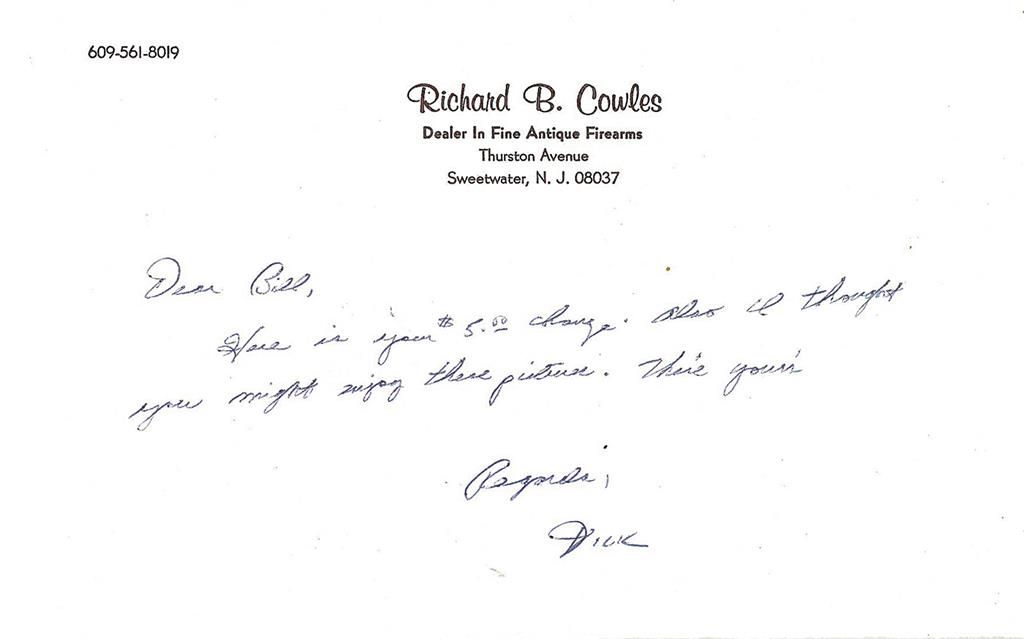 609-561-8019
Richard B. Cowles
Dealer In Fine Antique Firearms
Thurston Avenue
Sweetwater, N. J. 08037
Dear Bill,
Here is your $5.00 change. Also I thought
you might enjoy these picture. The're your's
Regards,
Dick